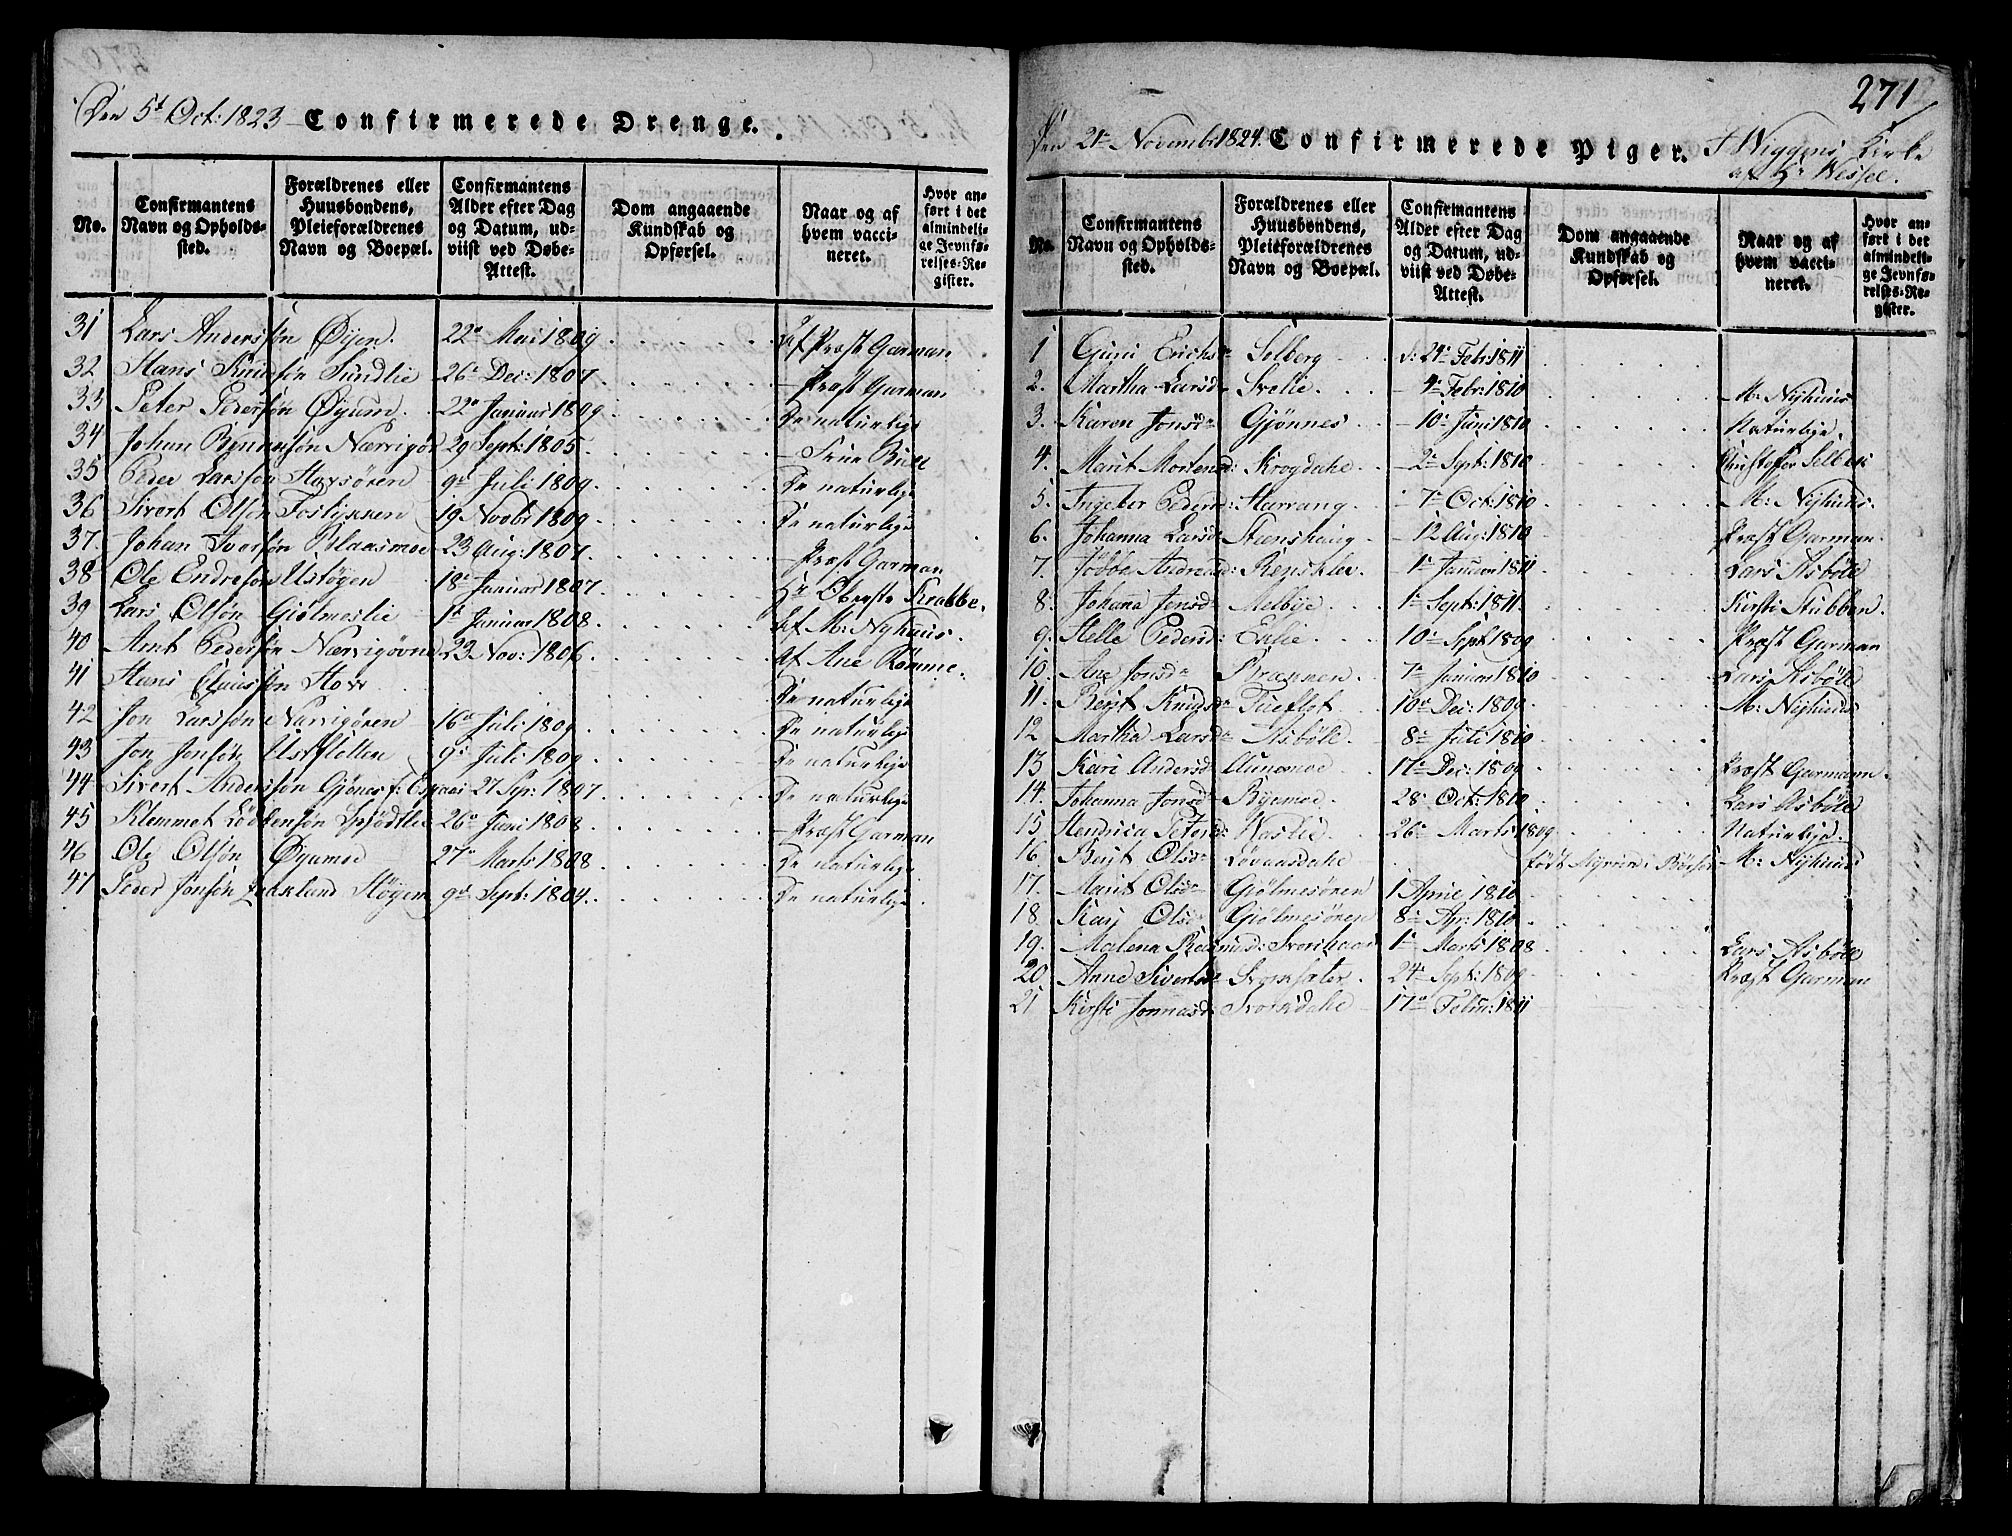 271
Den 5t Oct: 1823 Confirmerede Drenge.
No. Confirmantens Navn og Opholdssted. Forældrenes eller Huusbondens, Pleieforældrenes Navn og Boepæl. Confirmantens Alder efter Dag og Datum, udviist ved Døbe-Attest. Dom angaaende Kundskab og Opførsel. Naar og af hvem vaccineret. Hvor anført i det almindelige Jevnførelses-Register.
31 Lars Anderssøn Øyen. 22de Mai 1809 Af Præst Garman
32 Hans Knudsøn Sundlie 26de Dec: 1807 – Præst Garman
33 Peter Pedersøn Øyum. 22de Januar 1809 De naturlige
34 Johan 29 Sept: 1805 –
35 Peder Larssøn Hovsøren 9de Juli 1809 De naturlige
36 Sivert Olsøn 19 Novbr 1809 De naturlige
37 Johan Iversøn Blaasmoe 23 Aug: 1807 – Præst Garman
38 Ole Endresøn Ustøyen 18de Januar 1807 Hr Oberste Krabbe.
39 Lars Olsøn Giølmeslie 1t Januar 1808 Af M: Nyhuus.
40 Arnt Pedersøn 23 Nov: 1806 Af Ane Rømme.
41 Hans Claussøn Hov De naturlige
42 Jon Larssøn 16de Juli 1809 De naturlige
43 Jon Jonsøn Ustfletten 9de Juli 1809 De naturlige
44 Sivert Anderssøn Gjønes 27 Sep: 1807 De naturlige
45 Klemmet 26de Juni 1808 – Præst Garman
46 Ole Olsøn Øyamoe 27de Marts 1808 De naturlige
47 Peder Jonsøn Høyem 9de Sept: 1804 De naturlige
Den 21de Novembr 1824. Confirmerede Piger. I Wiggens Kirke
af Hr Wessel.
No. Confirmantens Navn og Opholdssted. Forældrenes eller Huusbondens, Pleieforældrenes Navn og Boepæl. Confirmantens Alder efter Dag og Datum, udviist ved Døbe-Attest. Dom angaaende Kundskab og Opførsel. Naar og af hvem vaccineret. Hvor anført i det almindelige Jevnførelses-Register.
1 Guri Erichsdr Solberg d: 24de Febr: 1811
2. Martha Larsdr Svelie 4de Febr: 1810 M: Nyhuus
3. Karen Jonsdr Gjønnes 10de Juni 1810 Naturlige.
4. Marit Mortensd: Krogdahe 2de Sept: 1810 Christofer Selbek
5. Ingeber Pedersd: Harrang 7de Oct: 1810 M: Nyhuus.
6. Johanna Larsd: Steenshaug 12 Aug: 1810 Præst Garman.
7. Andreasd: Renskler 1de Januar 1811 Lars Asbøle
8. Johana Jensdr Melbye 1de Sept: 1811 Kirsti Stubban.
9. Helle Pedersd: Enlie 10de Sept 1809 Præst Garman
10. Ane Jonsdr Brækken 7de Januar 1810 Lars Asbøle
11. Berit Knudsdr 10de Dec: 1809 M: Nyhuus
12 Martha Larsdr Asbøle 8de Juli 1810
13 Kari Andersdr Aunemoe 17de Dec: 1809 Præst Garmann.
14. Johanna Jonsdr Byemoe 28de Oct: 1810 Lars Asbøle
15 Hendrica Petersd: Waslie 26de Marts 1809 Naturlige.
16 Berit Olsdr Løvaasdahe født i Børsen M: Nyhuus
17. Marit Olsdr Giølmesøren 1 April 1810
18 Kari Olsdr Giølmesøren 8de Apr: 1810
19. Malena Rasmusd: Svorchaas 1de Marts 1808 Lars Asbøle
20 Anne Sivertsdr 24de Sept: 1809 Præst Garman
21 Kirsti Jonnasd: Svorkdahe 17de Febr: 1811